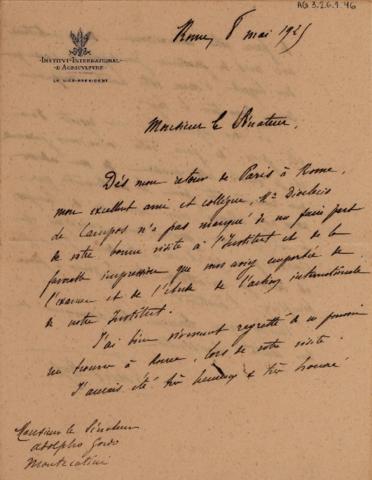 AG 3.2.6.9.46
INSTITUT INTERNATIONAL
D'AGRICULTURE
LE VICE-PRÉSIDENT
Rome, 8 mai 1925
Monsieur le Sénateur,
Dès mon retour de Paris à Rome,
mon excellent ami et collègue, Mr
de Campos n'a pas manqué de me faire part
de votre bonne visite à l'Institut et de la
favorable impression que vous aviez emportée de
l'examen et de l'étude de l'action internationale
de notre Institut.
J'ai bien vivement regretté de ne pouvoir
me trouver à Rome, lors de votre visite.
J'aurais été très heureux & très honoré
Monsieur le Sénateur
Adolpho Gordo
Montecatini